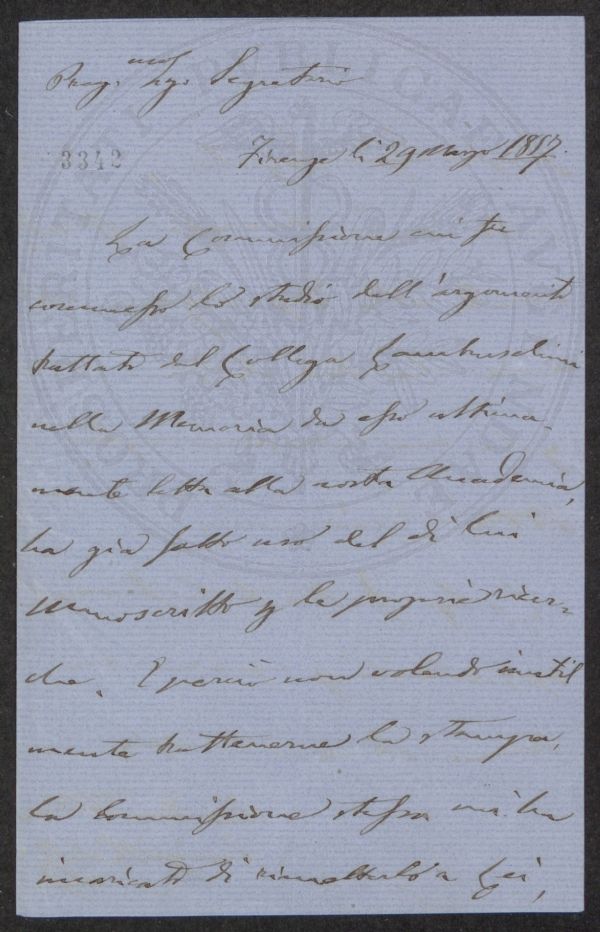 Preg.mo Sigr Segretario
3342
Firenze li 29 Marzo 1857.
La Commissione cui fu
commesso lo studio dell'argomento
trattato dal Collega Lambruschini
nella Memoria da esso ultima-
mente letta alla nostra Accademia,
ha già fatto uso del di lui
Manoscritto p le proprie ricer-
che. E perciò non volendo inutil
mente trattenerne la stampa,
la Commissione stessa mi ha
incaricato di rimetterlo a Lei,